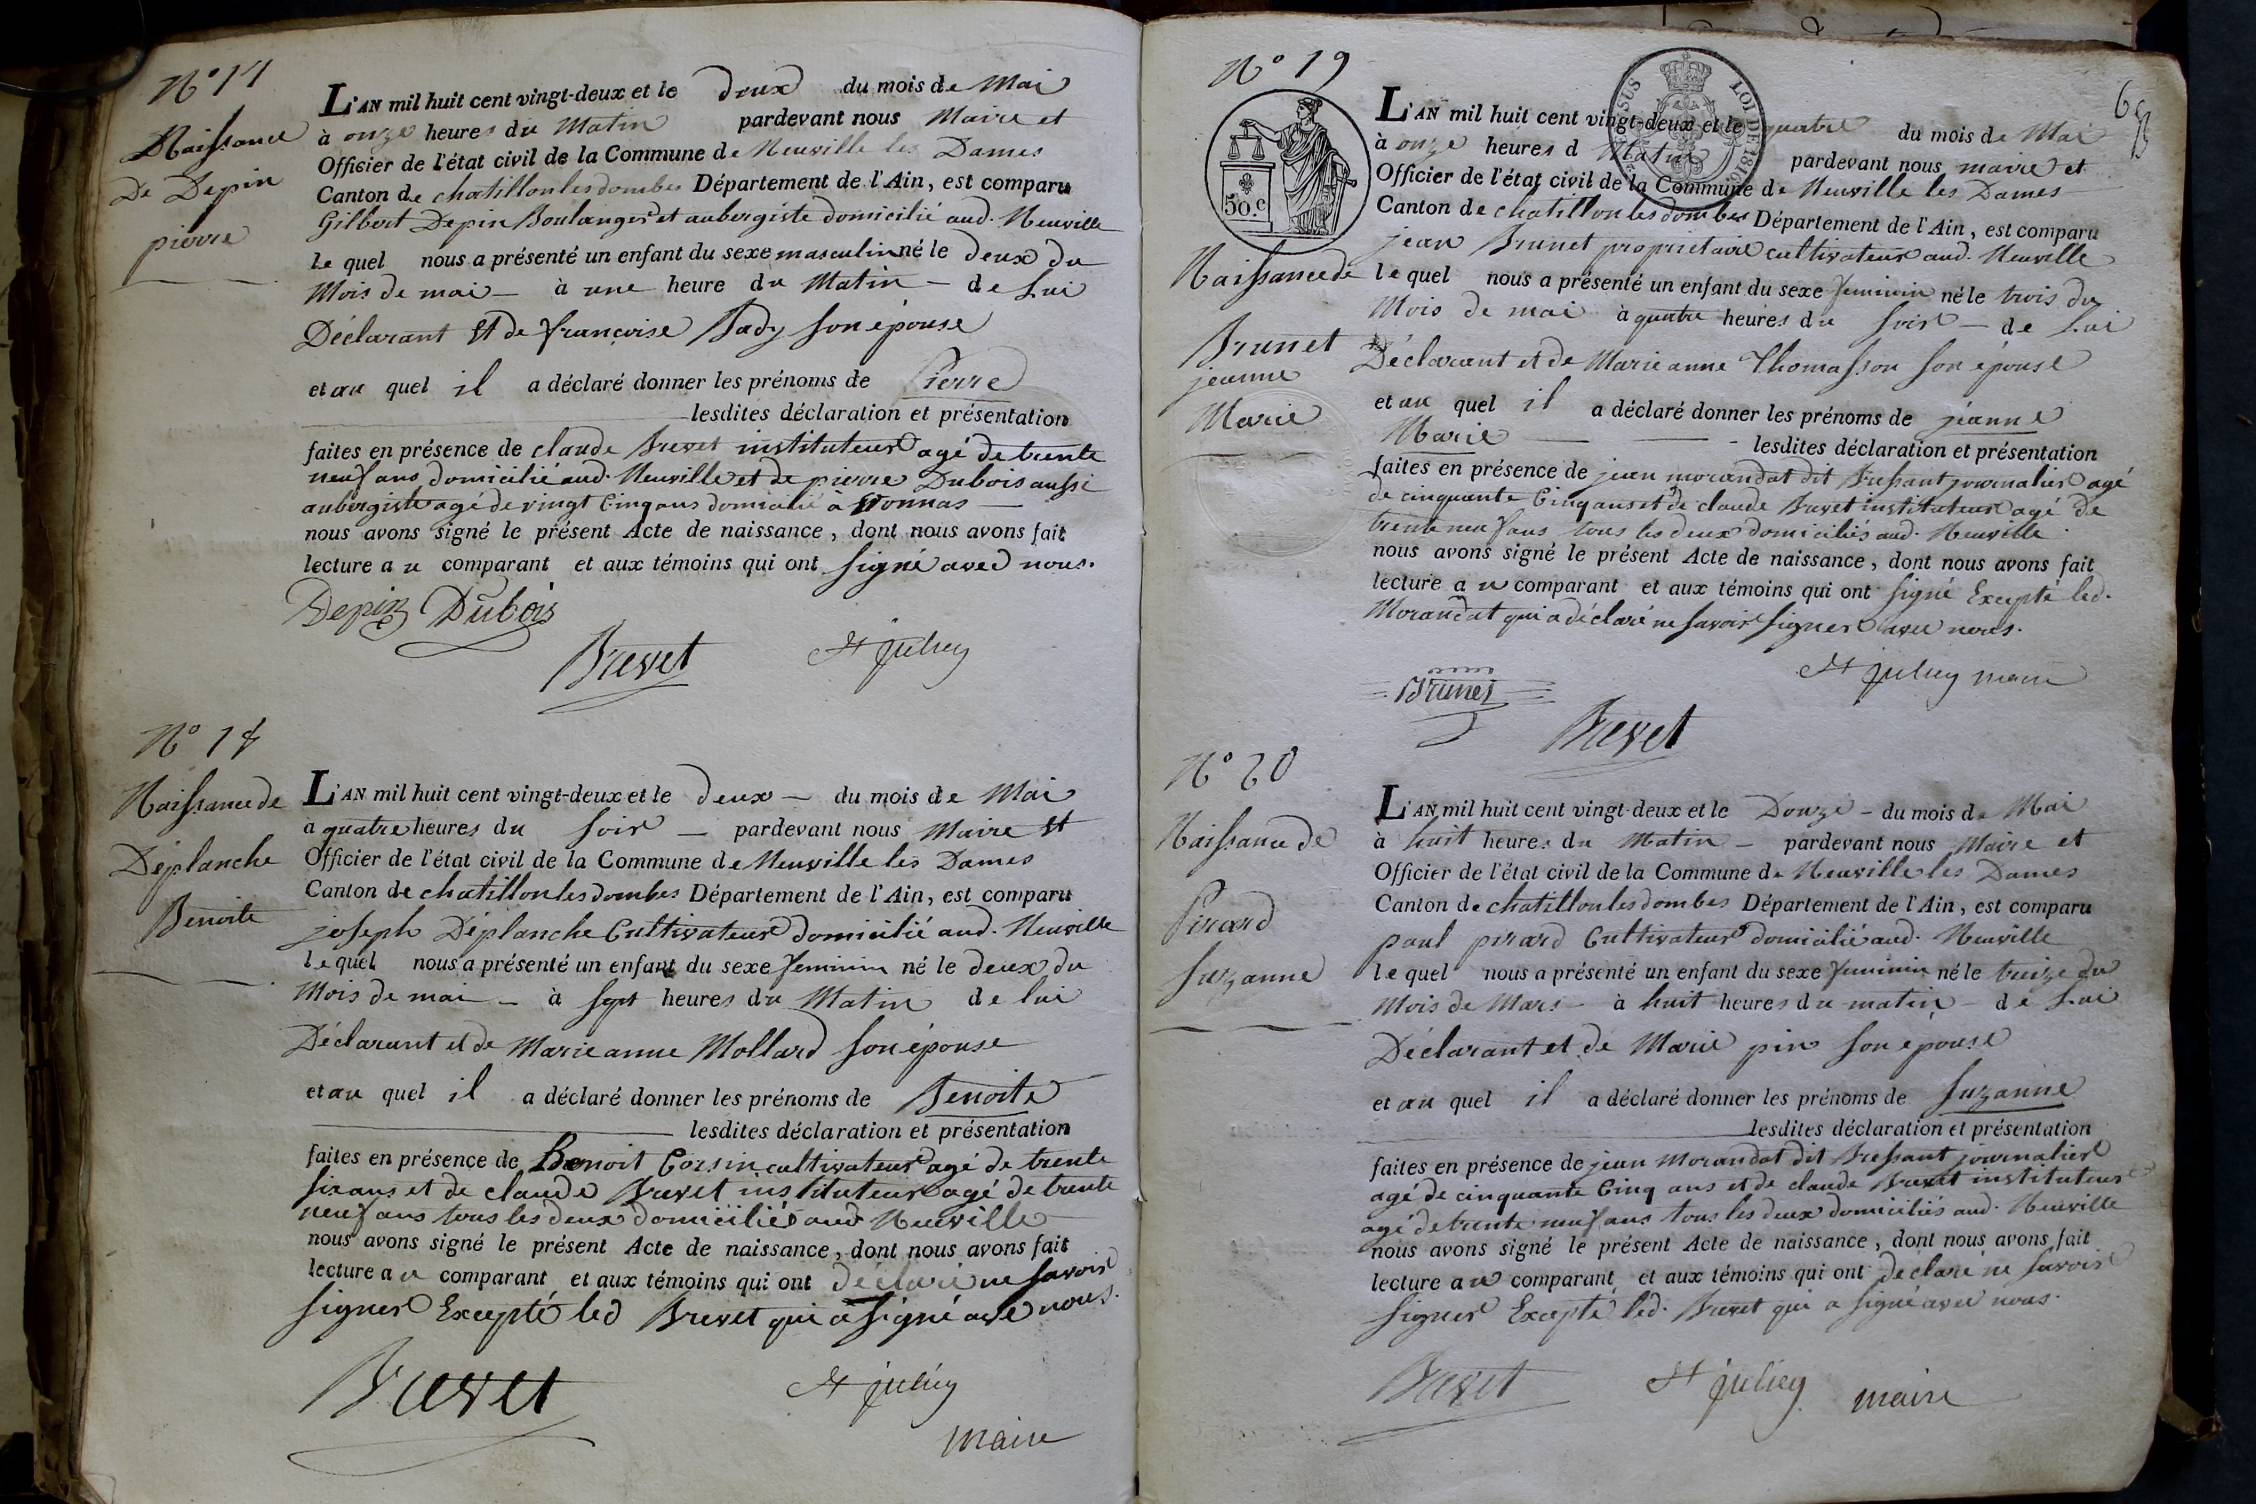 N° 17
Naissance
De Depin
pierre
L'AN mil huit cent vingt-deux et le deux du mois de Mai
à onze heures du Matin pardevant nous Maire et
Officier de l'état civil de la Commune de Neuville les Dames
Canton de chatillon les dombes Département de l'Ain, est comparu
Gilbert Depin Boulanger et aubergiste domicilié aud. Neuville
le quel nous a présenté un enfant du sexe masculin né le deux du
Mois de mai à une heure du Matin de Lui
Déclarant et de françoise Bady son épouse
et au quel il a déclaré donner les prénoms de Pierre
lesdites déclaration et présentation
faites en présence de claude Brevet instituteur agé de trente
neuf ans domicilié aud. Neuville et de pierre Dubois aussi
aubergiste agé de vingt Cinq ans domicilié à Vonnas
nous avons signé le présent Acte de naissance, dont nous avons fait
lecture au comparant et aux témoins qui ont signé avec nous.
Depin Dubois
Brevet St julien
N° 18
Naissance de
Déplanche
Benoite
L'AN mil huit cent vingt-deux et le deux du mois de Mai
à quatre heures du soir pardevant nous Maire et
Officier de l'état civil de la Commune de Neuville les Dames
Canton de chatillon les dombes Département de l'Ain, est comparu
joseph Déplanche Cultivateur domicilié aud. Neuville
le quel nous a présenté un enfant du sexe feminin né le deux du
Mois de mai à sept heures du Matin de lui
Déclarant et de Marie anne Mollard son épouse
et au quel il a déclaré donner les prénoms de Benoite
lesdites déclaration et présentation
faites en présence de Benoit Corsin cultivateur agé de trente
six ans et de claude Brevet instituteur agé de trente
neuf ans tous les deux domiciliés aud Neuville
nous avons signé le présent Acte de naissance, dont nous avons fait
lecture au comparant et aux témoins qui ont déclaré ne savoir
signer Excepté led Brevet qui a signé avec nous.
Brevet St julien
maire
N° 19
50.c
LOI DE 1816
Naissance de
Brunet
jeanne
Marie
L'AN mil huit cent vingt-deux et le quatre du mois de Mai
à onze heures d Matin pardevant nous maire et
Officier de l'état civil de la Commune de Neuville les Dames
Canton de chatillon les dombes Département de l'Ain, est comparu
jean Brunet propriétaire cultivateur aud. Neuville
le quel nous a présenté un enfant du sexe feminin né le trois du
Mois de mai à quatre heures du soir de Lui
Déclarant et de Marie anne Thomasson son épouse
et au quel il a déclaré donner les prénoms de jeanne
Marie lesdites déclaration et présentation
faites en présence de jean morandat dit Bressant journalier agé
de cinquante Cinq ans et de claude Brevet instituteur agé de
trente neuf ans tous les deux domiciliés aud. Neuville
nous avons signé le présent Acte de naissance, dont nous avons fait
lecture au comparant et aux témoins qui ont signé Excepté led.
Morandat qui a déclaré ne savoir signer avec nous.
St julien maire
Brunet
Brevet
N° 20
Naissance de
Pirard
Suzanne
L'AN mil huit cent vingt-deux et le Douze du mois de Mai
à huit heures du Matin pardevant nous Maire et
Officier de l'état civil de la Commune de Neuville les Dames
Canton de chatillon les dombes Département de l'Ain, est comparu
paul pirard Cultivateur domicilié aud. Neuville
le quel nous a présenté un enfant du sexe feminin né le treize du
Mois de Mars à huit heures du matin de Lui
Déclarant et de Marie pin son épouse
et au quel il a déclaré donner les prénoms de Suzanne
lesdites déclaration et présentation
faites en présence de jean Morandat dit Bressant journalier
agé de cinquante Cinq ans et de claude Brevet instituteur
agé de trente neuf ans tous les deux domiciliés aud. Neuville
nous avons signé le présent Acte de naissance, dont nous avons fait
lecture au comparant et aux témoins qui ont déclaré ne savoir
signer Excepté led. Brevet qui a signé avec nous.
Brevet St julien maire